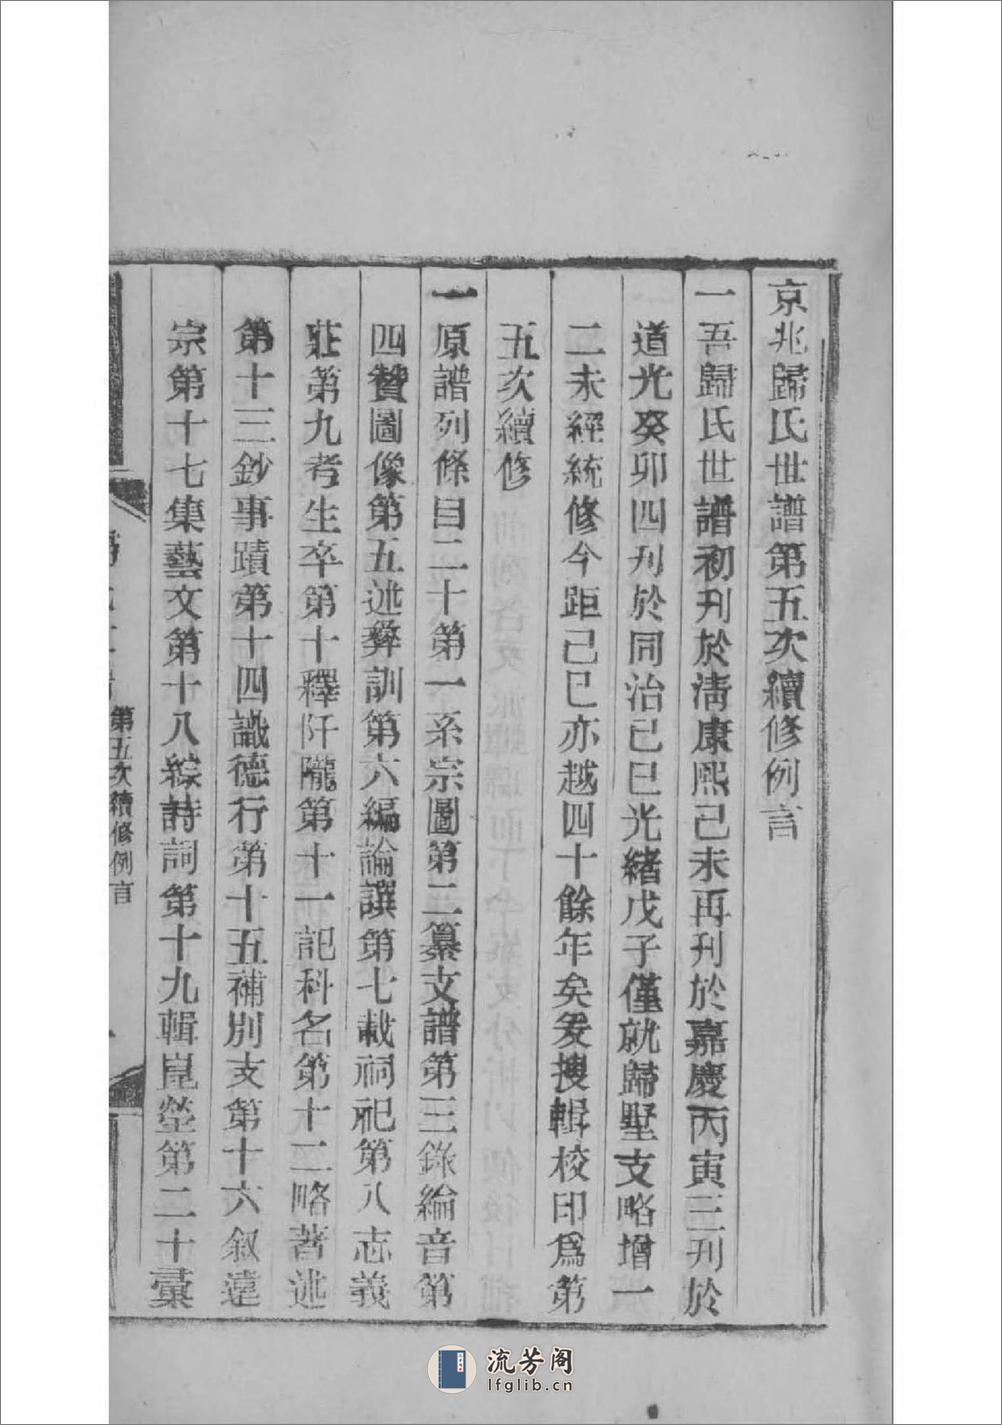 京兆歸氏世譜第五次續修例言
一吾歸氏世譜初刊於淸康熙己未再刊於嘉慶丙寅三刊於
道光癸卯四刊於同治己巳光緒戊子僅就歸墅支略增一
二未經統修今距己巳亦越四十餘年矣爰搜輯校印爲第
五次續修
一原譜列條目二十第一系宗圖第二纂支譜第三錄綸音第
四贊圖像第五述彝訓第六編論譔第七載祠祀第八志義
莊第九考生卒第十釋阡隴第十一記科名第十二略著述
第十三鈔事蹟第十四識德行第十五補別支第十六叙遠
宗第十七集藝文第十八綜詩詞第十九輯崑塋第二十彙
第五次續修例言
流芳阁
lfglib.cn